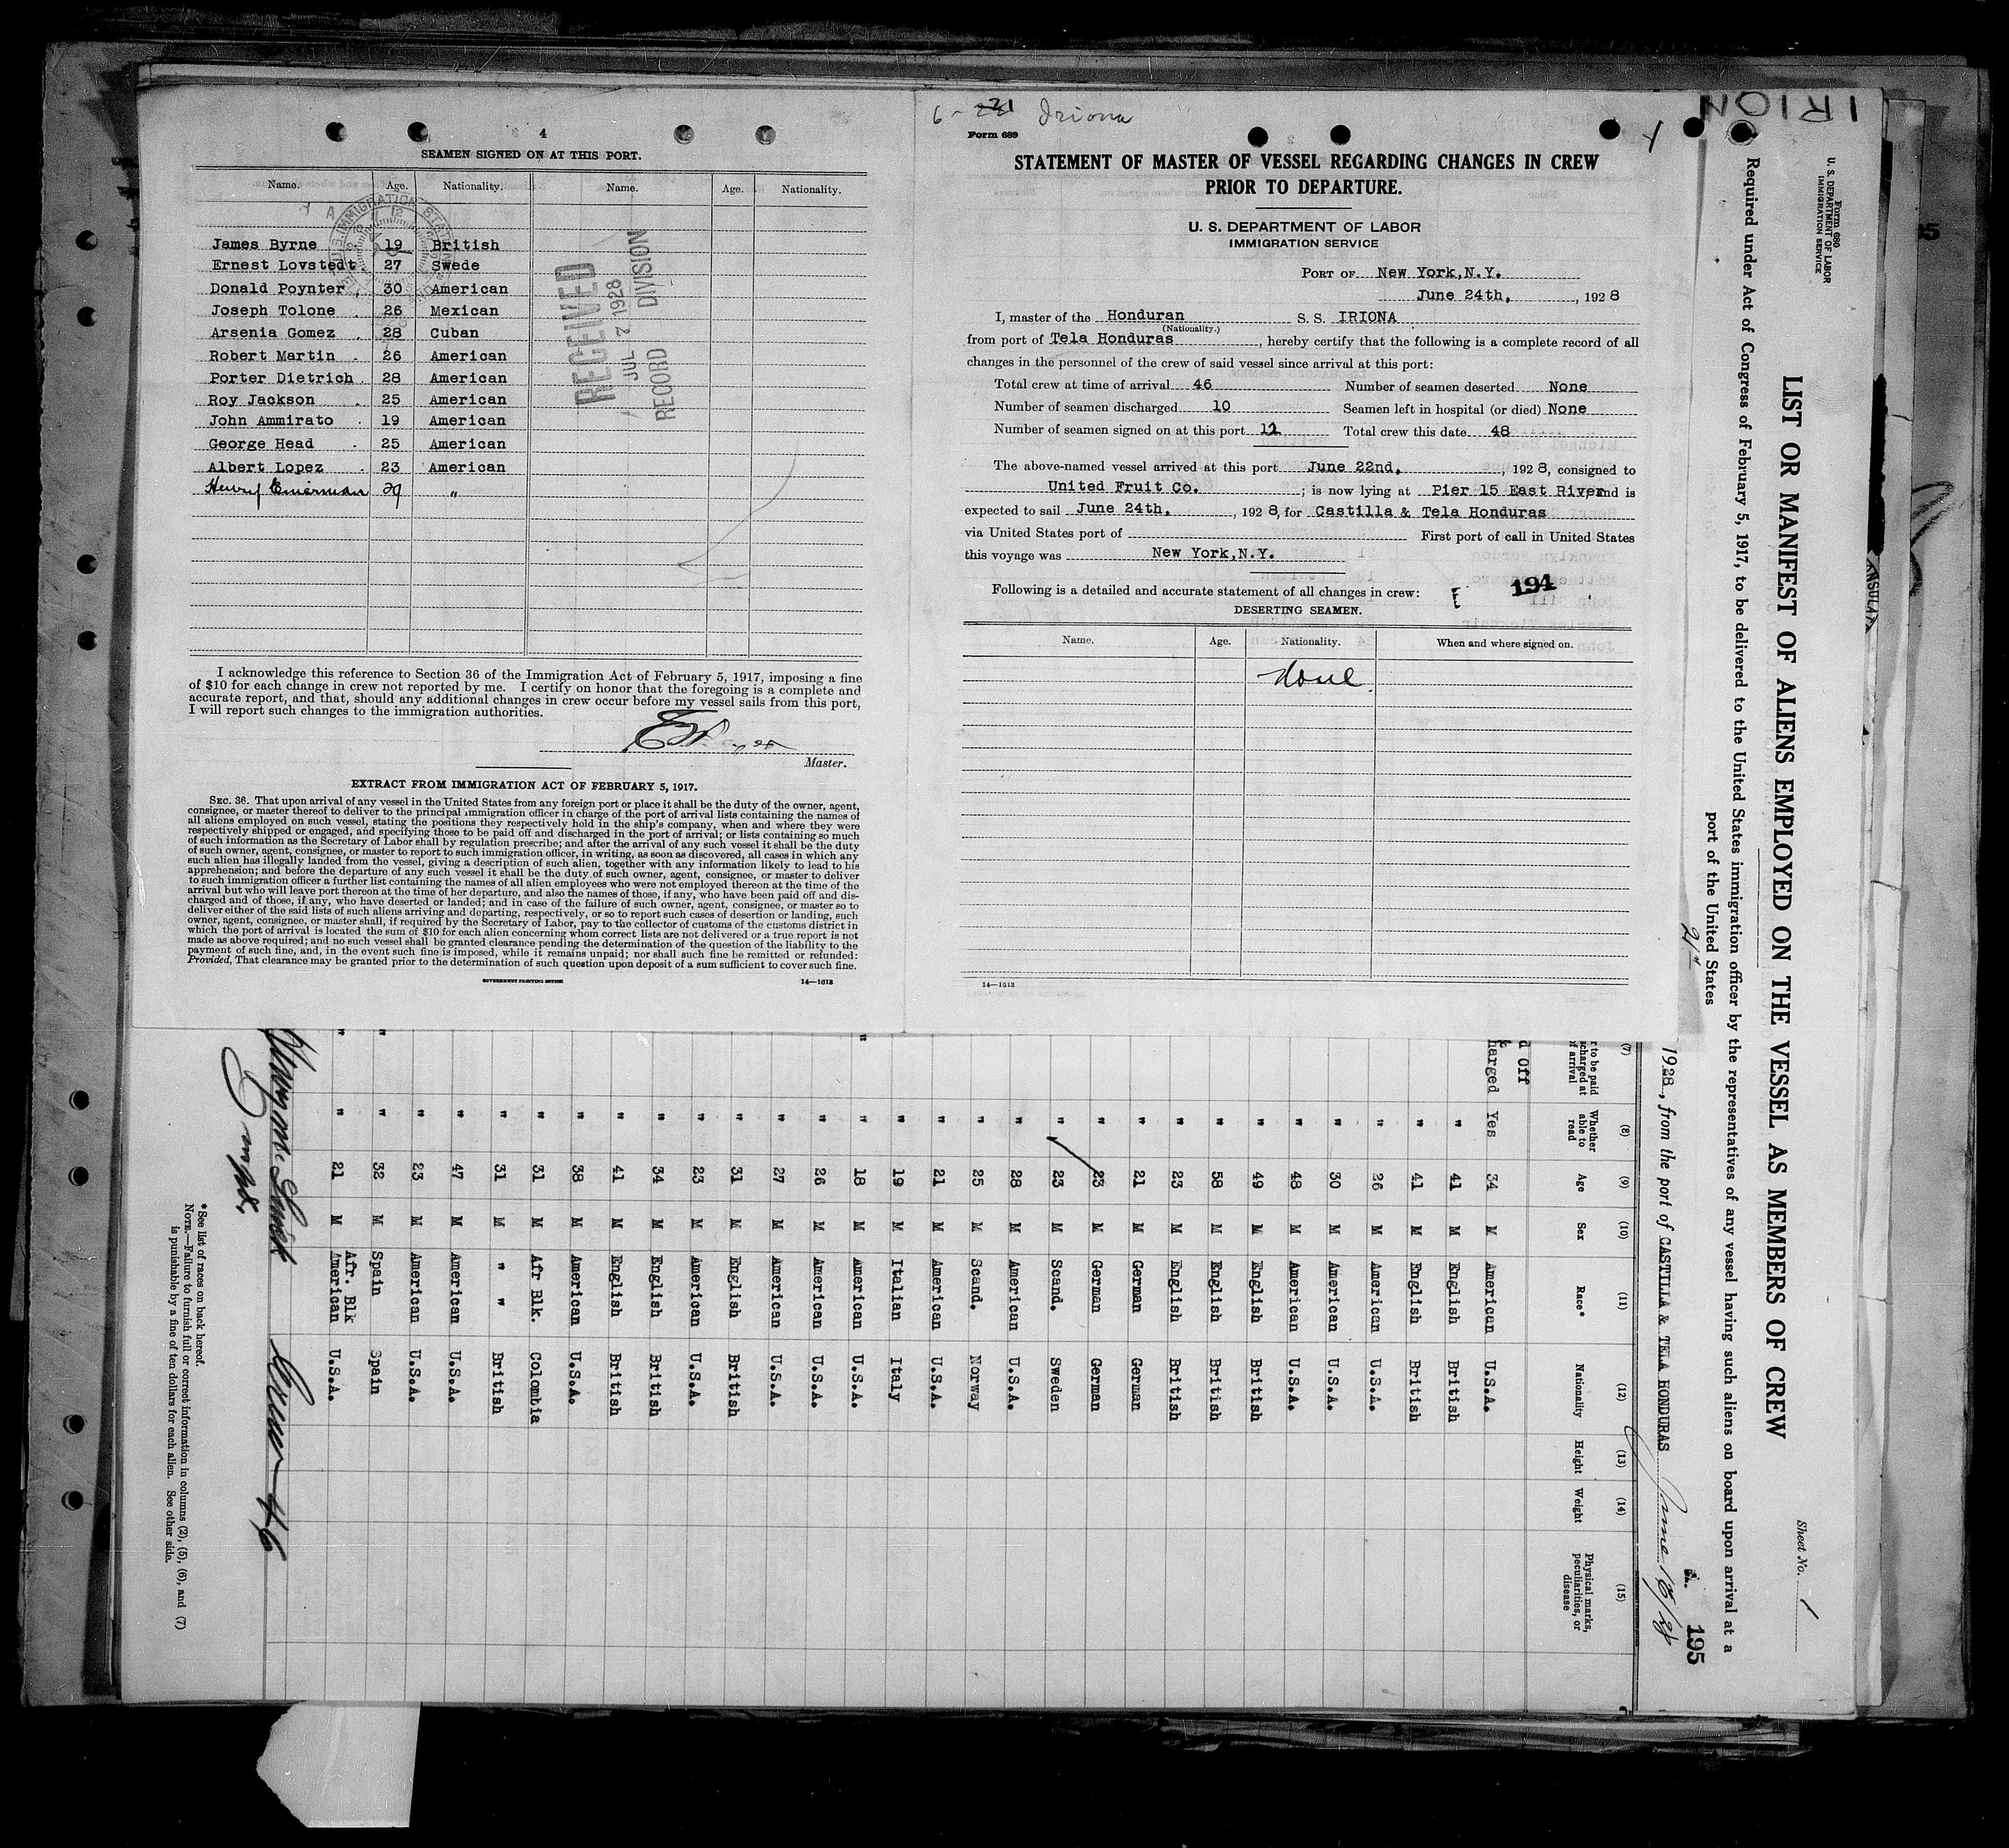 4
SEAMEN SIGNED ON AT THIS PORT.
Name. Age. Nationality. Name. Age. Nationality.
James Byrne 19 British
Ernest Lovstedt 27 Swede
Donald Poynter 30 American
Joseph Tolone 26 Mexican
Arsenia Gomez 28 Cuban
Robert Martin 26 American
Porter Dietrich 28 American
Roy Jackson 25 American
John Ammirato 19 American
George Head 25 American
Albert Lopez 23 American
Henry Emerman 29 "
U.S. IMMIGRATION STATION
RECEIVED
JUL 7 1928
RECORD DIVISION
I acknowledge this reference to Section 36 of the Immigration Act of February 5, 1917, imposing a fine
of $10 for each change in crew not reported by me. I certify on honor that the foregoing is a complete and
accurate report, and that, should any additional changes in crew occur before my vessel sails from this port,
I will report such changes to the immigration authorities.
Master.
EXTRACT FROM IMMIGRATION ACT OF FEBRUARY 5, 1917.
SEC. 36. That upon arrival of any vessel in the United States from any foreign port or place it shall be the duty of the owner, agent,
consignee, or master thereof to deliver to the principal immigration officer in charge of the port of arrival lists containing the names of
all aliens employed on such vessel, stating the positions they respectively hold in the ship's company, when and where they were
respectively shipped or engaged, and specifying those to be paid off and discharged in the port of arrival; or lists containing so much
of such information as the Secretary of Labor shall by regulation prescribe; and after the arrival of any such vessel it shall be the duty
of such owner, agent, consignee, or master to report to such immigration officer, in writing, as soon as discovered, all cases in which any
such alien has illegally landed from the vessel, giving a description of such alien, together with any information likely to lead to his
apprehension; and before the departure of any such vessel it shall be the duty of such owner, agent, consignee, or master to deliver
to such immigration officer a further list containing the names of all alien employees who were not employed thereon at the time of the
arrival but who will leave port thereon at the time of her departure, and also the names of those, if any, who have been paid off and dis-
charged and of those, if any, who have deserted or landed; and in case of the failure of such owner, agent, consignee, or master so to
deliver either of the said lists of such aliens arriving and departing, respectively, or so to report such cases of desertion or landing, such
owner, agent, consignee, or master shall, if required by the Secretary of Labor, pay to the collector of customs of the customs district in
which the port of arrival is located the sum of $10 for each alien concerning whom correct lists are not delivered or a true report is not
made as above required; and no such vessel shall be granted clearance pending the determination of the question of the liability to the
payment of such fine, and, in the event such fine is imposed, while it remains unpaid; nor shall such fine be remitted or refunded:
Provided, That clearance may be granted prior to the determination of such question upon deposit of a sum sufficient to cover such fine.
GOVERNMENT PRINTING OFFICE 14—1613
6-21 Iriona
Form 689
STATEMENT OF MASTER OF VESSEL REGARDING CHANGES IN CREW
PRIOR TO DEPARTURE.
U. S. DEPARTMENT OF LABOR
IMMIGRATION SERVICE
PORT OF New York,N.Y.
June 24th, , 1928
I, master of the Honduran S. S. IRIONA
(Nationality.)
from port of Tela Honduras , hereby certify that the following is a complete record of all
changes in the personnel of the crew of said vessel since arrival at this port:
Total crew at time of arrival 46 Number of seamen deserted None
Number of seamen discharged 10 Seamen left in hospital (or died) None
Number of seamen signed on at this port 12 Total crew this date 48
The above-named vessel arrived at this port June 22nd, , 1928, consigned to
United Fruit Co. ; is now lying at Pier 15 East River and is
expected to sail June 24th, , 1928, for Castilla & Tela Honduras
via United States port of First port of call in United States
this voyage was New York,N.Y.
Following is a detailed and accurate statement of all changes in crew: E 194
DESERTING SEAMEN.
Name. Age. Nationality. When and where signed on.
None
14—1613
IRION
Form 680
U. S. DEPARTMENT OF LABOR
IMMIGRATION SERVICE
Sheet No. 1
LIST OR MANIFEST OF ALIENS EMPLOYED ON THE VESSEL AS MEMBERS OF CREW
Required under Act of Congress of February 5, 1917, to be delivered to the United States immigration officer by the representatives of any vessel having such aliens on board upon arrival at a
port of the United States
195
1928, from the port of CASTILLA & TELA HONDURAS June 15/28
(7) (8) (9) (10) (11) (12) (13) (14) (15)
Whether able to read Age Sex Race* Nationality Height Weight Physical marks, peculiarities, or disease
d Off
harged Yes 34 M American U.S.A.
" 41 M English British
" 41 M English British
" 26 M American U.S.A.
" 30 M American U.S.A.
" 48 M American U.S.A.
" 49 M English British
" 58 M English British
" 23 M English British
" 21 M German German
" 23 M German German
" 23 M Scand. Sweden
" 28 M American U.S.A.
" 25 M Scand. Norway
" 21 M American U.S.A.
" 19 M Italian Italy
" " 18 M American U.S.A.
" 26 M American U.S.A.
" 27 M American U.S.A.
" 31 M English British
" 23 M American U.S.A.
" 34 M English British
" 41 M English British
" 38 M American U.S.A.
" 31 M Afr Blk. Colombia
" 31 M " " British
" 47 M American U.S.A.
" 23 M American U.S.A.
" " 32 M Spain Spain
" " 21 M Afr. Blk American U.S.A.
Crew 46
*See list of races on back hereof.
NOTE.—Failure to furnish full or correct information in columns (2), (5), (6), and (7)
is punishable by a fine of ten dollars for each alien. See other side.